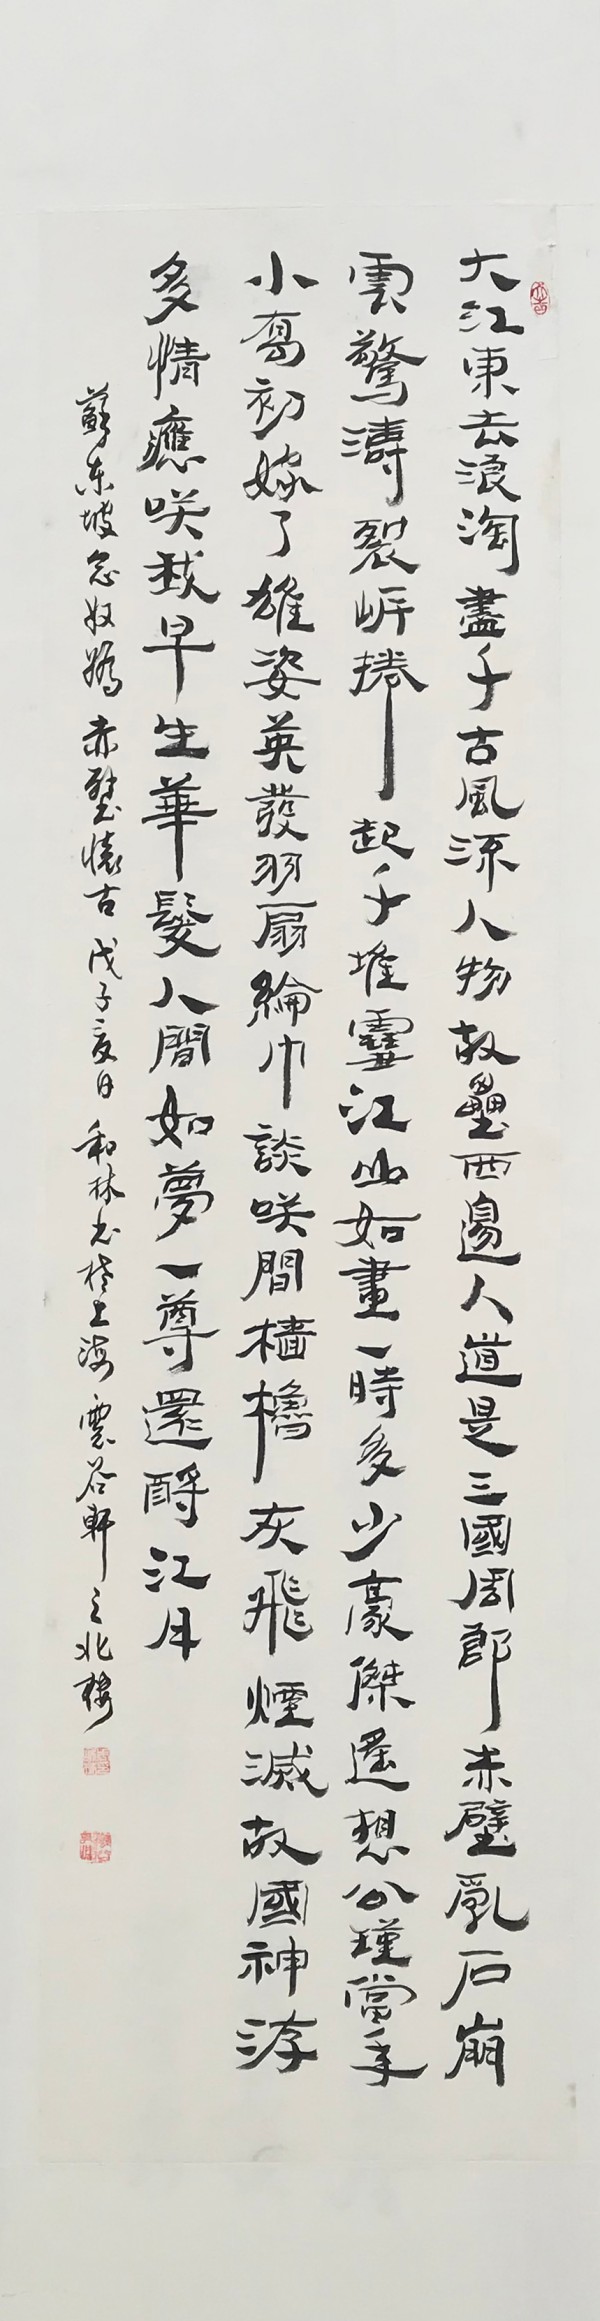 大江東去浪淘盡千古風流人物故壘西邊人道是三國周郎赤壁亂石崩
雲驚濤裂岸捲起千堆雪江山如畫一時多少豪傑遙想公瑾當年
小喬初嫁了雄姿英發羽扇綸巾談笑間檣櫓灰飛煙滅故國神游
多情應笑我早生華髮人間如夢一尊還酹江月
蘇东坡念奴嬌赤壁懷古戊子夏日和林书於上海雲谷軒之北樓